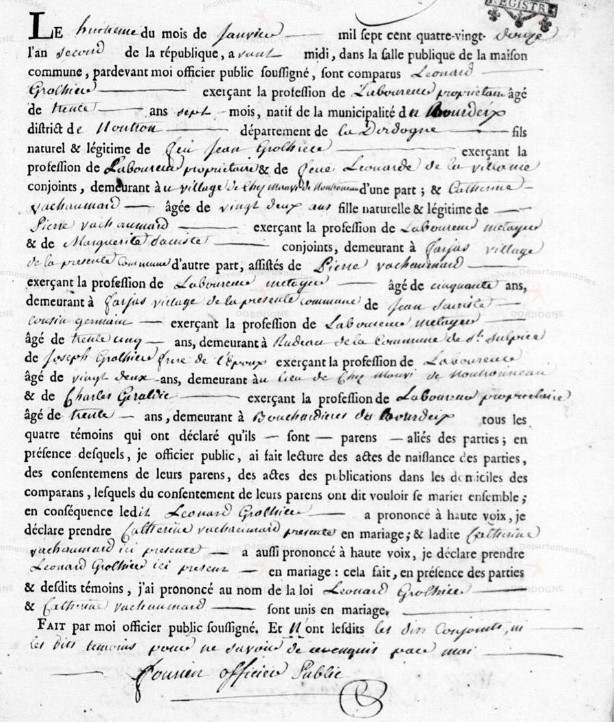 REGISTRE
LE huitieme du mois de Janvier mil sept cent quatre-vingt- douze
l'an second de la république, avant midi, dans la salle publique de la maison
commune, pardevant moi officier public soussigné, sont comparus Leonard
Grolhiere exerçant la profession de Laboureur proprietaire âgé
de trente ans sept mois, natif de la municipalité du Bourdeix
district de Nontron département de la Dordogne fils
naturel & légitime de feu Jean Grolhiere exerçant la
profession de Laboureur proprietaire & de feue Leonarde de la
conjoints, demeurant à u village de Chez Mauvi de d'une part ; & Catherine
vachaumard âgée de vingt deux ans fille naturelle & légitime de
Pierre vachaumard exerçant la profession de Laboureur metayer
& de Marguerite conjoints, demeurant à farjas village
de la presente commune d'autre part, assistés de Pierre vachaumard
exerçant la profession de Laboureur metayer âgé de cinquante ans,
demeurant à farjas village de la presente commune de Jean
cousin germain exerçant la profession de Laboureur metayer
âgé de trente cinq ans, demeurant à Rudeau de la Commune de St. Sulpice
de Joseph Grolhiere frere de l'époux exerçant la profession de Laboureur
âgé de vingt deux ans, demeurant au lieu de Chez Mauvi de
& de Charles exerçant la profession de Laboureur proprietaire
âgé de trente ans, demeurant à du Bourdeix tous les
quatre témoins qui ont déclaré qu'ils — sont — parens — aliés des parties ; en
présence desquels, je officier public, ai fait lecture des actes de naissance des parties,
des consentemens de leurs parens, des actes des publications dans les domiciles des
comparans, lesquels du consentement de leurs parens ont dit vouloir se marier ensemble ;
en conséquence ledit Leonard Grolhiere a prononcé à haute voix, je
déclare prendre Catherine vachaumard presente en mariage ; & ladite Catherine
vachaumard ici presente a aussi prononcé à haute voix, je déclare prendre
Leonard Grolhiere ici present en mariage : cela fait, en présence des parties
& desdits témoins, j'ai prononcé au nom de la loi Leonard Grolhiere
& Catherine vachaumard sont unis en mariage.
FAIT par moi officier public soussigné. Et N'ont lesdits les dits Conjoints, ni
les dits temoins pour ne savoir de ce enquis par moi
officier Public